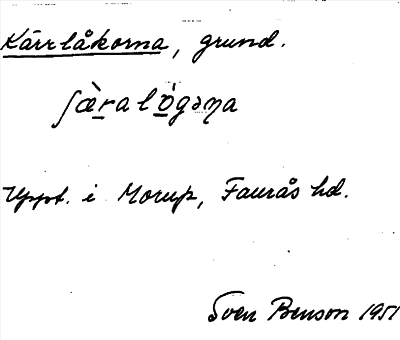 Kärrlåkorna, grund.
ʃæ̀ralógəɳa
Uppt. i Morup, Faurås hd.
Sven Benson 1951